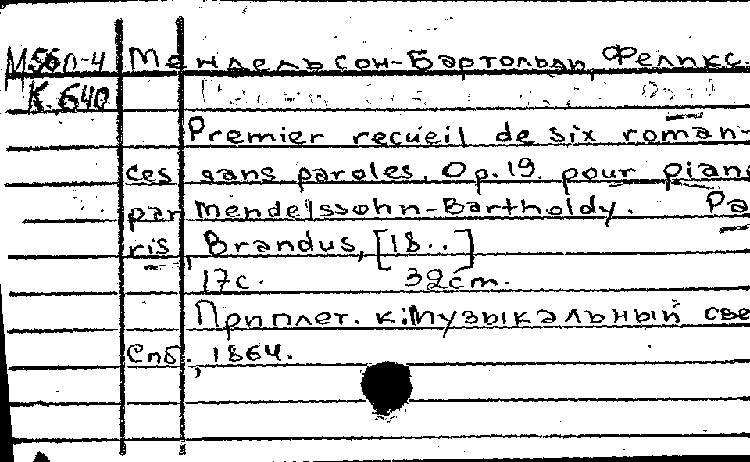 М560-4 Мендельсон-Бартольди, Феликс.
К.640
Premier recueil de six roman-
ces sans paroles. Op.19. pour piano
par Mendelssohn-Bartholdy. Pa
ris, Brandus, [18..]
17с. 32см.
Приплет. к: Музыкальный све
Спб., 1864.